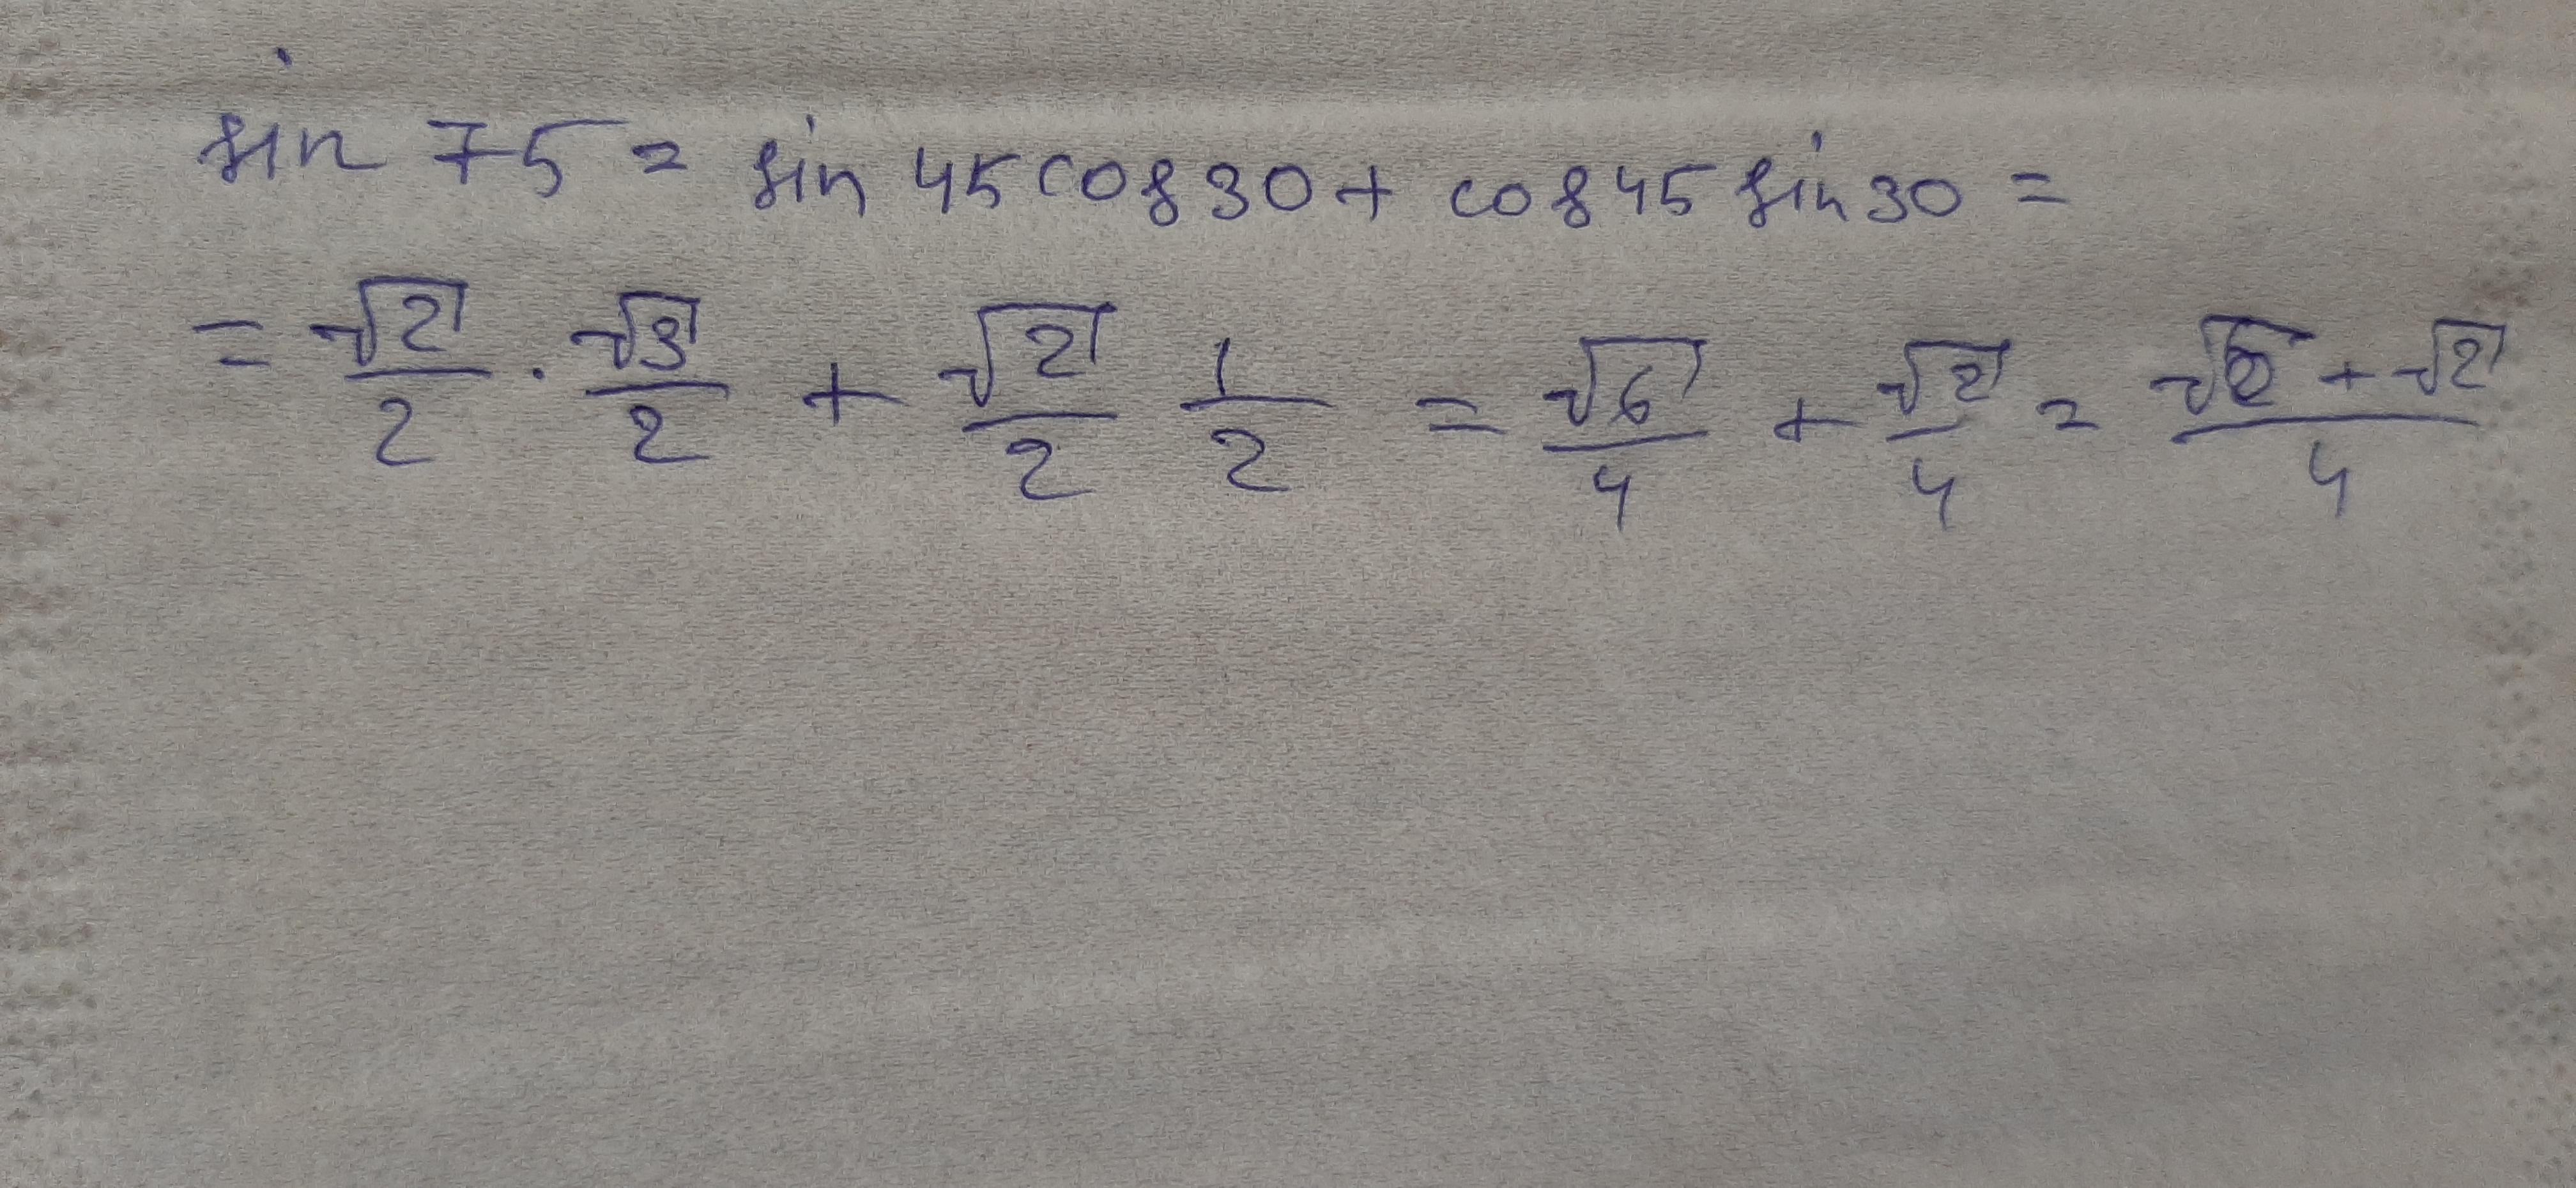 sin 75 = sin 45 cos 30 + cos 45 sin 30 =
= √2/2 · √3/2 + √2/2 1/2 = √6/4 + √2/4 = (√6 + √2)/4